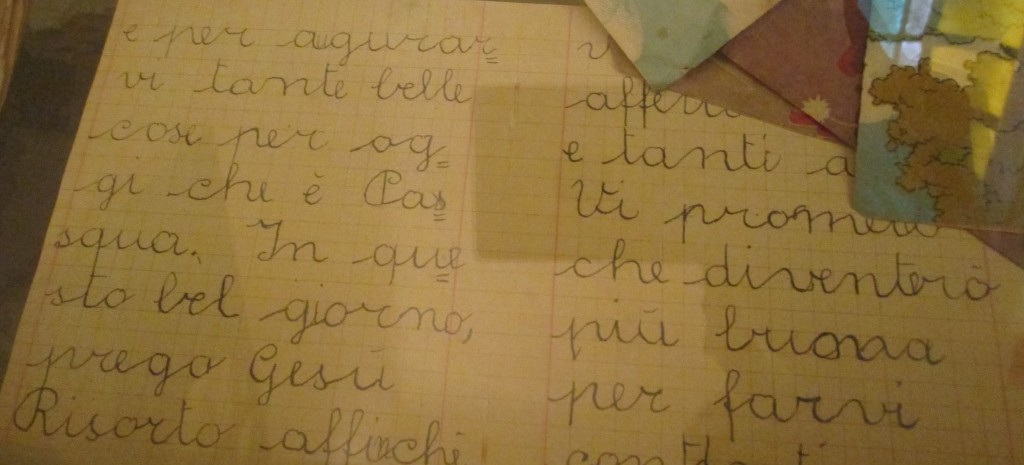 e per agurar=
vi tante belle
cose per og=
gi che è Pas=
squa. In que=
sto bel giorno,
prego Gesù
Risorto affinchè
e tanti
Vi
che diventerò
più buona
per farvi